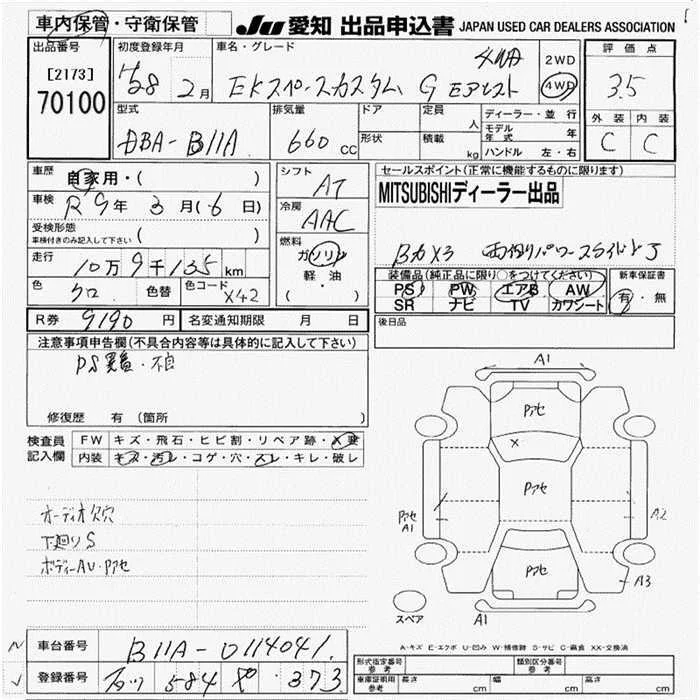 車内保管・守衛保管
JU 愛知 出品申込書 JAPAN USED CAR DEALERS ASSOCIATION
出品番号
[2173]
70100
初度登録年月
H28 2月
車名・グレード
EKスペースカスタム G Eアシスト 4WD
2WD
4WD
評価点
3.5
外装 内装
C C
型式
DBA-B11A
排気量
660 cc
ドア
形状
定員
人
積載
kg
ディーラー・並行
モデル年式 年
ハンドル 左・右
車歴
自家用・( )
車検
R9年3月(6日)
受検形態
車検付きのみ記入して下さい ( )
走行
10万9千135km
色
クロ 色替
色コード
X42
シフト
AT
冷房
AAC
燃料
ガソリン
軽・油
( )
セールスポイント(正常に機能するものに限ります)
MITSUBISHIディーラー出品
Bカメラ 両側パワースライドドア
装備品(純正品に限り○をつけてください)
PS PW エアB AW
SR ナビ TV カワシート
新車保証書
有・無
後日品
R券 9190円
名変通知期限 月 日
注意事項申告欄(不具合内容等は具体的に記入して下さい)
PS異音・不良
修復歴 有(箇所
検査員記入欄
FW キズ・飛石・ヒビ割・リペア跡・X要
内装 キズ・汚レ・コゲ・穴・スレ・キレ・破レ
オーディオ欠穴
下廻りS
ボディーAU・Pアセ
A1
Pアセ
X
Pアセ
Pアセ
A1
A2
Pアセ
A3
スペア
A1
A-キズ E-エクボ U-凹み W-補修跡 S-サビ C-腐食 XX-交換済
車台番号
B11A-0114041
登録番号
584 373
形式指定番号 参考
類別区分番号 参考
車庫証明用 参考
長さ cm 幅 cm 高さ cm